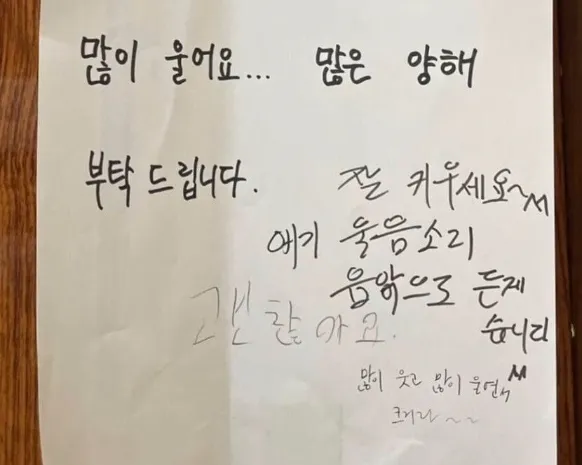 많이 울어요... 많은 양해
부탁 드립니다.
잘 키우세요~^^
애기 울음소리
음앆으로 든제
습니다
괜찮아요.
많이 웃고 많이 울면서^^
크거라~~